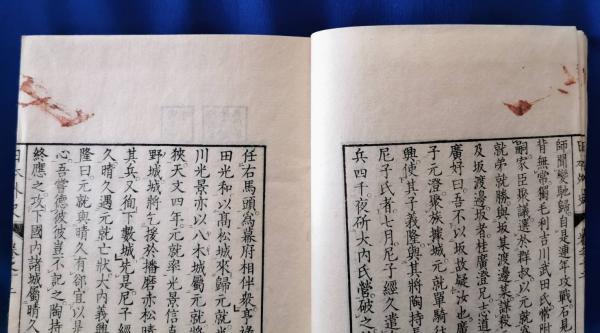 師聞變馳歸自是連年攻戰石
背無常獨毛利吉川武田氏常
嗣家臣聚議選於群叔以元就
就弟就勝與坂某渡邊某謀殺
及坂渡邊坂者桂廣澄兄志道
廣好曰吾不以坂故疑汝也廣
子元澄聚族據城元就單騎往
興使其子義隆與其將陶持
尼子氏者七月尼子經久遣
兵四千夜斫大內氏營破之
任右馬頭為幕府相伴衆尋
田光和以高松城來歸元就
川光景亦以八木城屬元就
狹天文四年元就率光景信
野城城將乞援於播磨赤松
其兵又徇下數城先是尼子經
久晴久遇元就亡狀大內義興
隆曰元就與晴久有郤宜以是
心吾嘗德彼彼豈不記之陶持
終應之攻下國內諸城屬晴久
日本外史